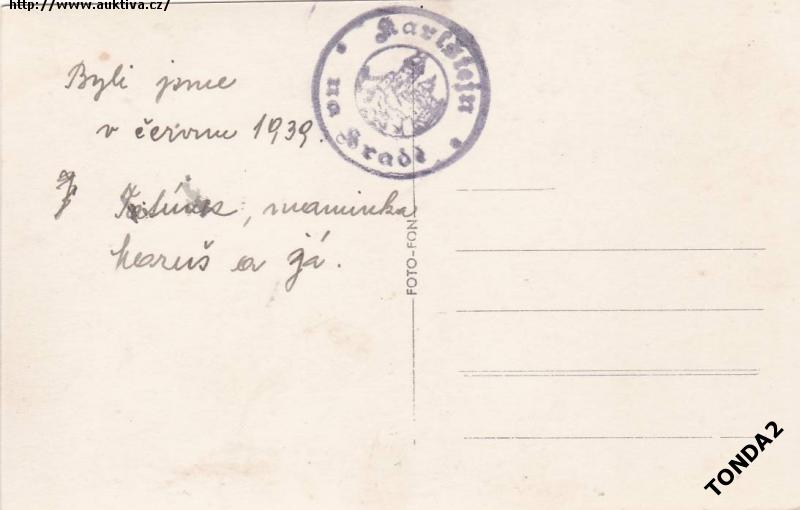 http://www.auktiva.cz/
na Hradě Karlštejn
Byli jsme
v červnu 1939.
maminka
a já.
FOTO-FON
TONDA2